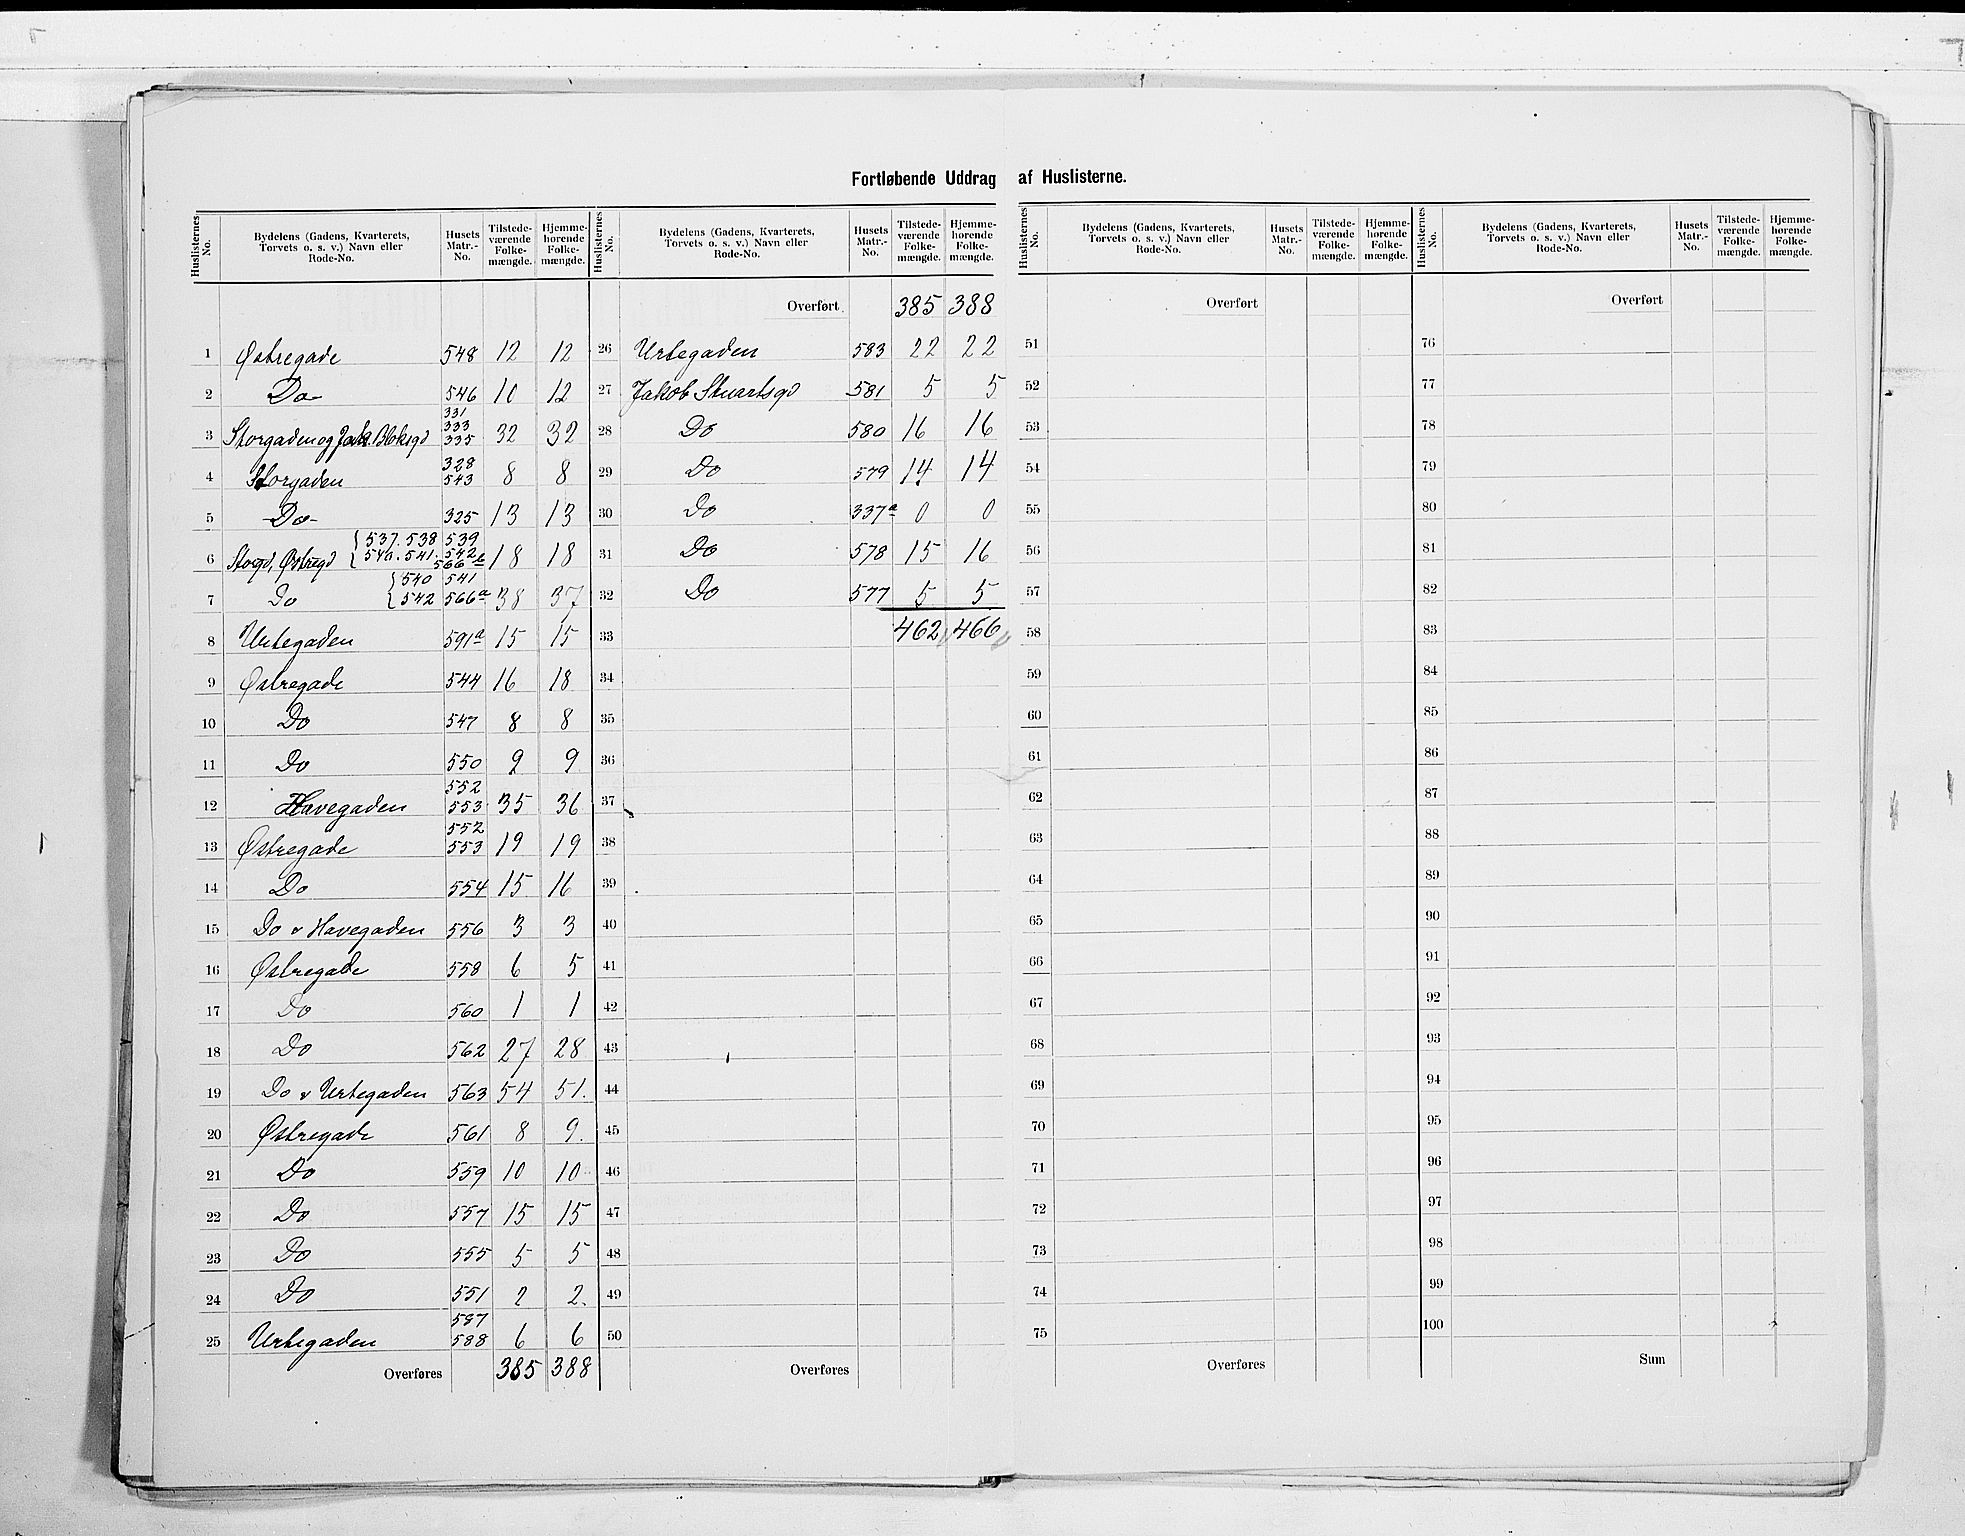 Fortløbende Uddrag af Huslisterne.
Huslisternes No. | Bydelens (Gadens, Kvarterets, Torvets o. s. v.) Navn eller Rode-No. | Husets Matr.-No. | Tilstedeværende Folkemængde. | Hjemmehørende Folkemængde.
1 Østregade 548 12 12
2 Do 546 10 12
3 Storgaden og Jak. Bloksgd 331 333 335 32 32
4 Storgaden 328 543 8 8
5 Do 325 13 13
6 Storgd, Østregd { 537. 538 539 540. 541. 542 566 18 18
7 Do { 540 541 542 566a 38 37
8 Urtegaden 591a 15 15
9 Østregade 544 16 18
10 Do 547 8 8
11 Do 550 9 9
12 Havegaden 552 553 35 36
13 Østregade 552 553 19 19
14 Do 554 15 16
15 Do & Havegaden 556 3 3
16 Østregade 558 6 5
17 Do 560 1 1
18 Do 562 27 28
19 Do & Urtegaden 563 54 51.
20 Østregade 561 8 9.
21 Do 559 10 10
22 Do 557 15 15
23 Do 555 5 5
24 Do 551 2 2.
25 Urtegaden 587 588 6 6
Overføres 385 388
Huslisternes No. | Bydelens (Gadens, Kvarterets, Torvets o. s. v.) Navn eller Rode-No. | Husets Matr.-No. | Tilstedeværende Folkemængde. | Hjemmehørende Folkemængde.
Overført 385 388
26 Urtegaden 583 22 22
27 Jakob Stuartsgd 581 5 5
28 Do 580 16 16
29 Do 579 14 14
30 Do 337a 0 0
31 Do 578 15 16
32 Do 577 5 5
33 462 466
34
35
36
37
38
39
40
41
42
43
44
45
46
47
48
49
50
Overføres
Huslisternes No. | Bydelens (Gadens, Kvarterets, Torvets o. s. v.) Navn eller Rode-No. | Husets Matr.-No. | Tilstedeværende Folkemængde. | Hjemmehørende Folkemængde.
Overført
51
52
53
54
55
56
57
58
59
60
61
62
63
64
65
66
67
68
69
70
71
72
73
74
75
Overføres
Huslisternes No. | Bydelens (Gadens, Kvarterets, Torvets o. s. v.) Navn eller Rode-No. | Husets Matr.-No. | Tilstedeværende Folkemængde. | Hjemmehørende Folkemængde.
Overført
76
77
78
79
80
81
82
83
84
85
86
87
88
89
90
91
92
93
94
95
96
97
98
99
100
Sum